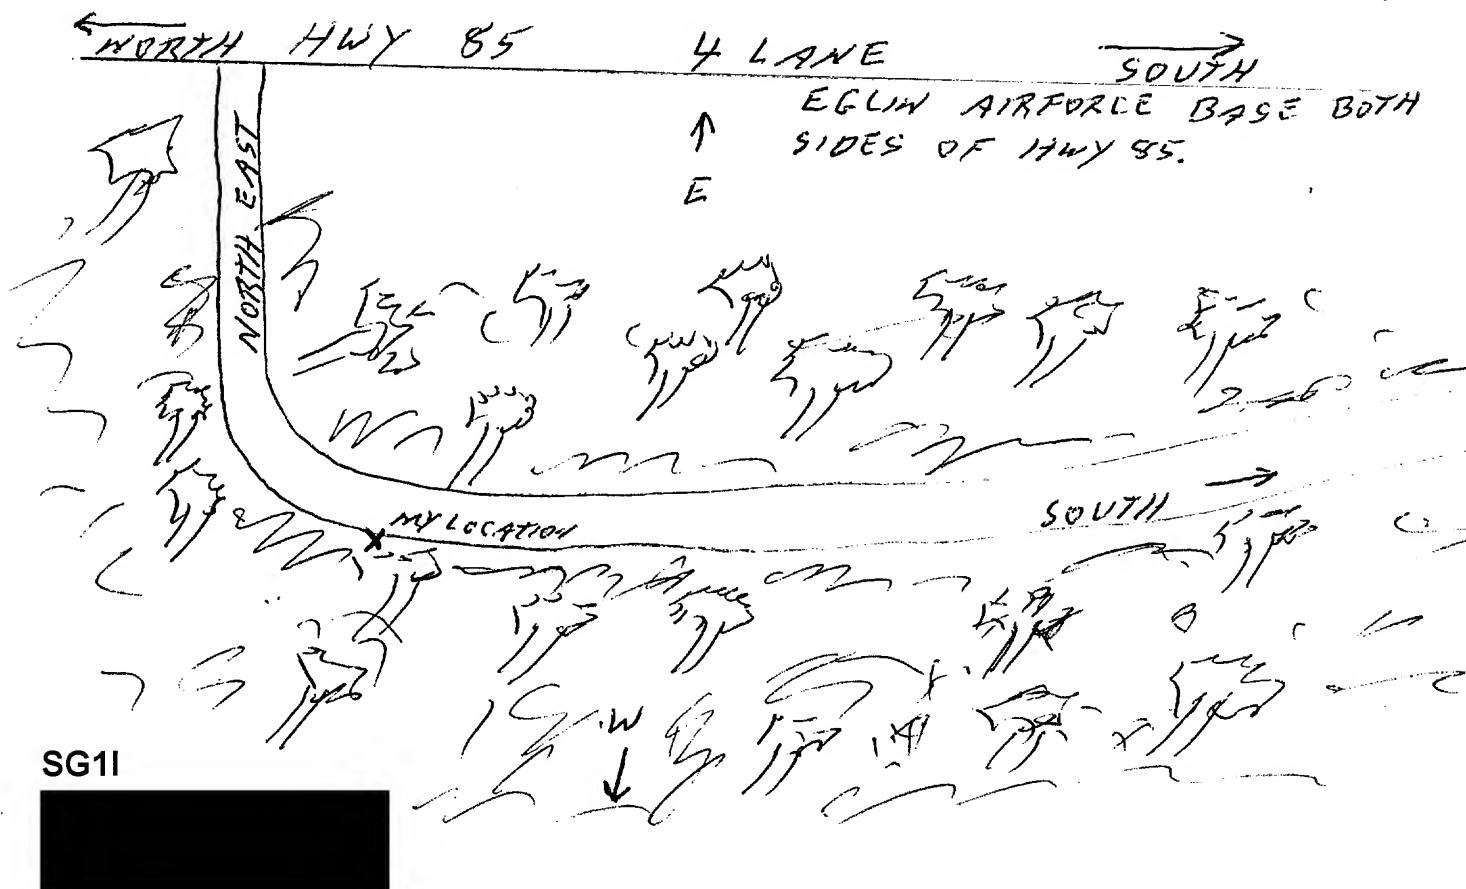 NORTH HWY 85 4 LANE SOUTH
EGLIN AIRFORCE BASE BOTH
SIDES OF HWY 85.
E
NORTH EAST
SOUTH
MY LOCATION
W
SG1I